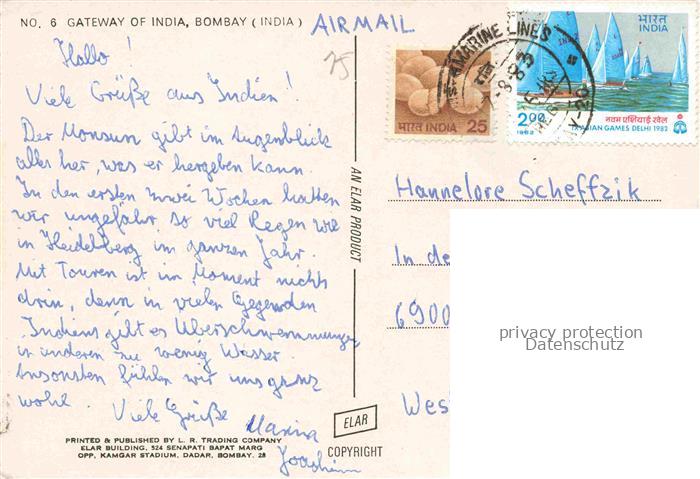 NO. 6 GATEWAY OF INDIA, BOMBAY (INDIA)
AIRMAIL
Hallo!
Viele Grüße aus Indien!
Der Monsun gibt im Augenblick
alles her, was er hergeben kann.
In den ersten zwei Wochen hatten
wir ungefähr so viel Regen wie
in Heidelberg im ganzen Jahr.
Mit Touren ist im Moment nichts
drin, denn in vielen Gegenden
Indiens gibt es Überschwemmungen
in anderen zu wenig Wasser.
Ansonsten fühlen wir uns ganz
wohl.
Viele Grüße
Marina
Joachim
PRINTED & PUBLISHED BY L. R. TRADING COMPANY
ELAR BUILDING, 524 SENAPATI BAPAT MARG
OPP, KAMGAR STADIUM, DADAR, BOMBAY. 28
AN ELAR PRODUCT
ELAR
COPYRIGHT
75
भारत INDIA 25
MARINE LINES
83
भारत
INDIA
2.00
1982
नवम एशियाई खेल
IX ASIAN GAMES DELHI 1982
Hannelore Scheffzik
In de
6900
Wes
privacy protection
Datenschutz